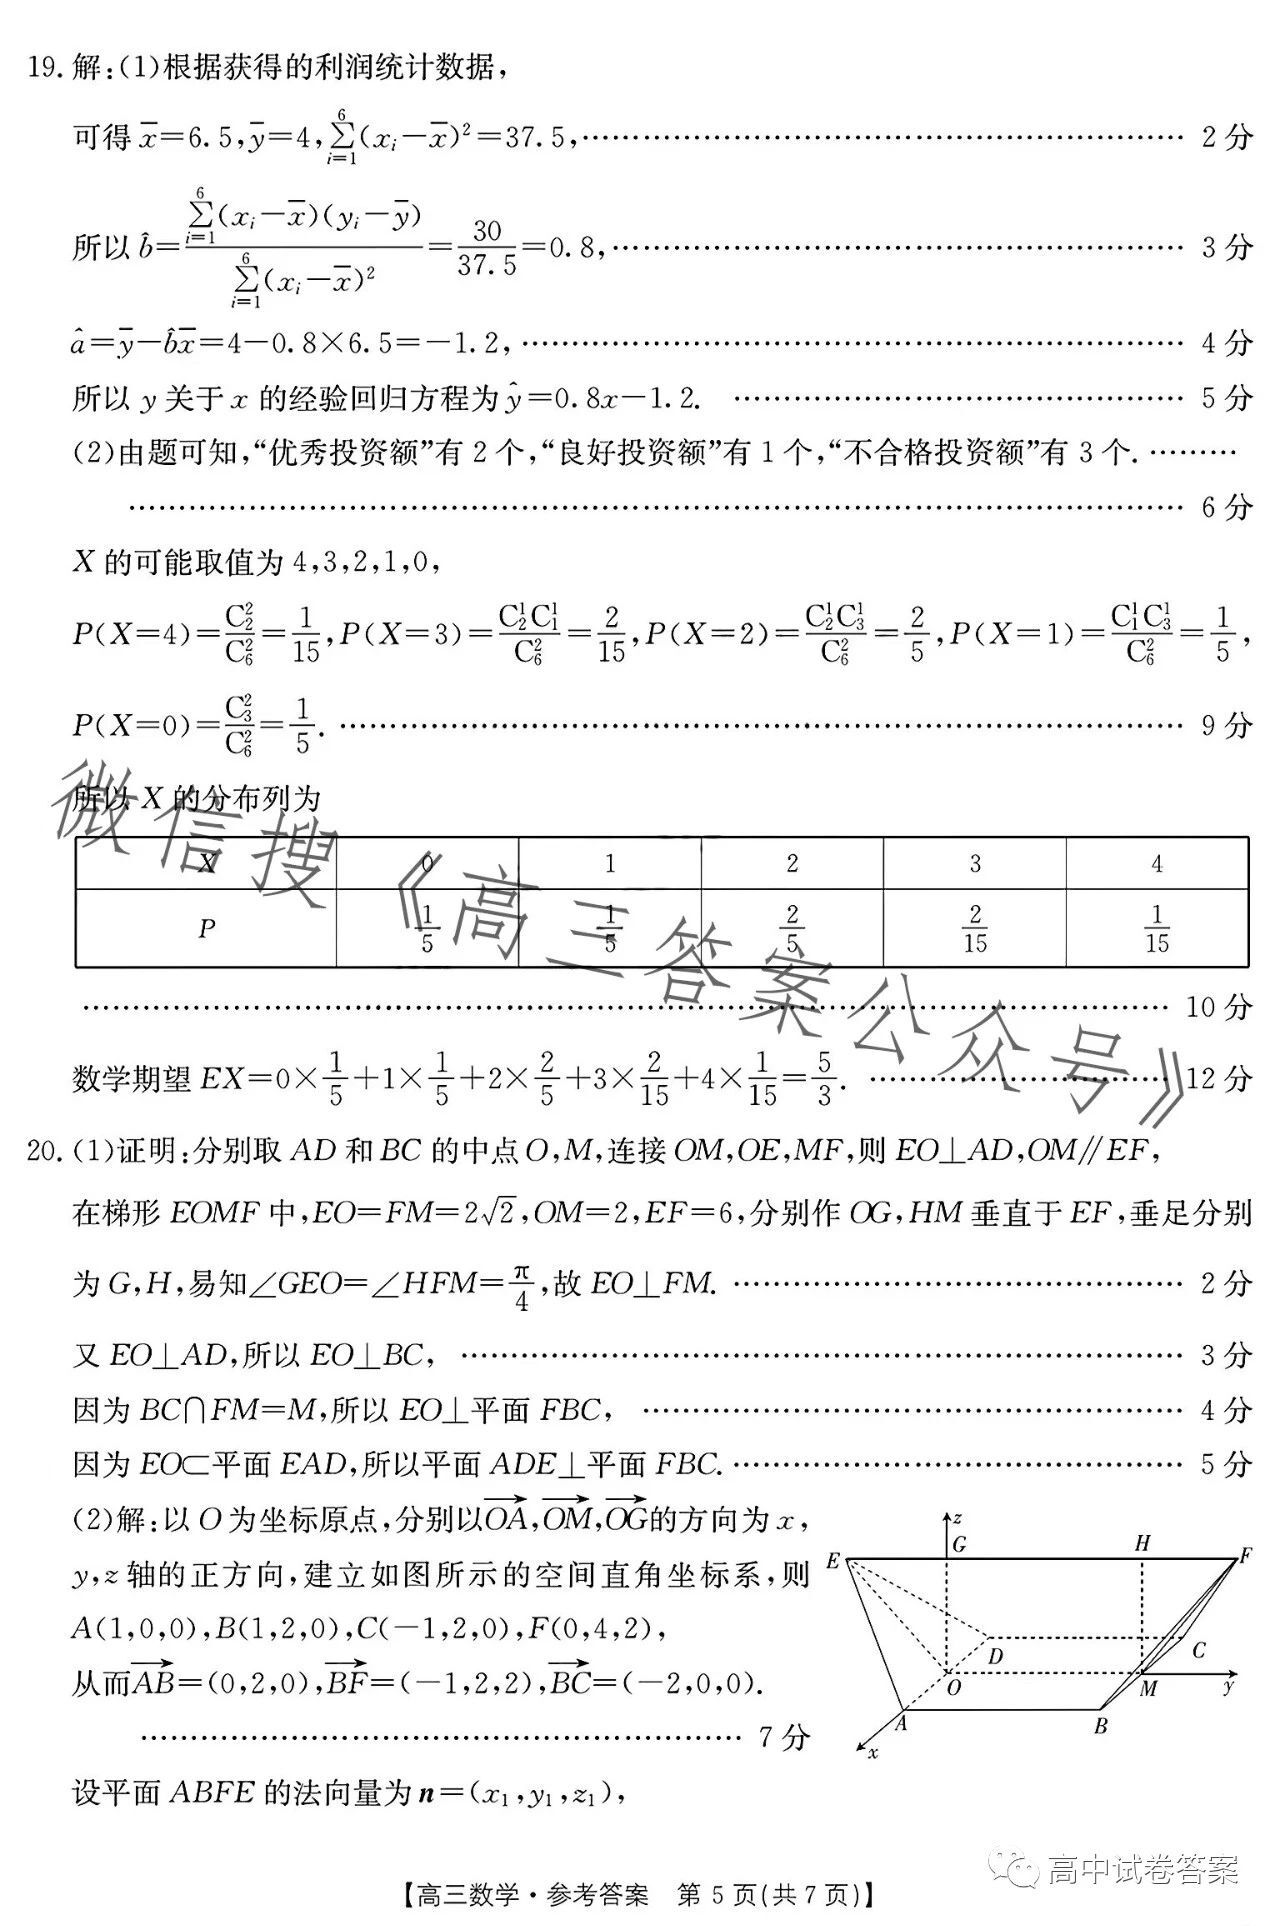 19. 解:(1)根据获得的利润统计数据,
可得 x̄=6.5,ȳ=4,∑_{i=1}^{6}(x_i-x̄)²=37.5,…… 2 分
所以 b̂=∑_{i=1}^{6}(x_i-x̄)(y_i-ȳ)/∑_{i=1}^{6}(x_i-x̄)²=30/37.5=0.8,…… 3 分
â=ȳ-b̂x̄=4-0.8×6.5=-1.2,…… 4 分
所以 y 关于 x 的经验回归方程为 ŷ=0.8x-1.2. …… 5 分
(2)由题可知,“优秀投资额”有 2 个,“良好投资额”有 1 个,“不合格投资额”有 3 个. ……
…… 6 分
X 的可能取值为 4,3,2,1,0,
P(X=4)=C₂²/C₆²=1/15,P(X=3)=C₂¹C₁¹/C₆²=2/15,P(X=2)=C₂¹C₃¹/C₆²=2/5,P(X=1)=C₁¹C₃¹/C₆²=1/5,
P(X=0)=C₃²/C₆²=1/5. …… 9 分
所以 X 的分布列为
X 0 1 2 3 4
P 1/5 1/5 2/5 2/15 1/15
…… 10 分
数学期望 EX=0×1/5+1×1/5+2×2/5+3×2/15+4×1/15=5/3. …… 12 分
微信搜《高三答案公众号》
20. (1)证明:分别取 AD 和 BC 的中点 O,M,连接 OM,OE,MF,则 EO⊥AD,OM∥EF,
在梯形 EOMF 中,EO=FM=2√2,OM=2,EF=6,分别作 OG,HM 垂直于 EF,垂足分别
为 G,H,易知∠GEO=∠HFM=π/4,故 EO⊥FM. …… 2 分
又 EO⊥AD,所以 EO⊥BC, …… 3 分
因为 BC∩FM=M,所以 EO⊥平面 FBC, …… 4 分
因为 EO⊂平面 EAD,所以平面 ADE⊥平面 FBC. …… 5 分
(2)解:以 O 为坐标原点,分别以OA→,OM→,OG→的方向为 x,
y,z 轴的正方向,建立如图所示的空间直角坐标系,则
A(1,0,0),B(1,2,0),C(-1,2,0),F(0,4,2),
从而AB→=(0,2,0),BF→=(-1,2,2),BC→=(-2,0,0).
…… 7 分
设平面 ABFE 的法向量为 n=(x₁,y₁,z₁),
z
E G H F
D C
O M y
A B
x
高中试卷答案
【高三数学·参考答案 第 5 页(共 7 页)】